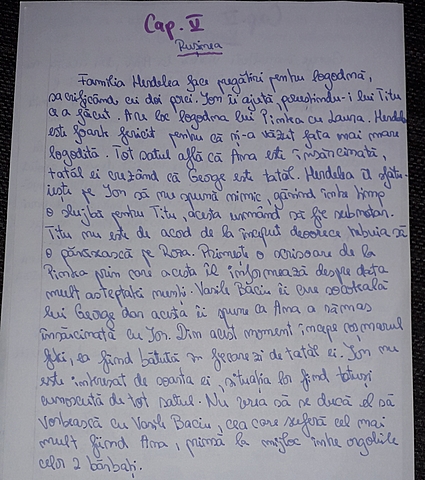 Cap. V
Rușinea
Familia Herdelea face pregătiri pentru logodnă,
sacrificând cei doi porci. Ion îi ajută, povestindu-i lui Titu
ce a făcut. Are loc logodna lui Pintea cu Laura. Herdelea
este foarte fericit pentru că și-a văzut fata mai mare
logodită. Tot satul află că Ana este însărcinată,
tatăl ei crezând că George este tatăl. Herdelea îl sfătu-
iește pe Ion să nu spună nimic, găsind între timp
o slujbă pentru Titu, acesta urmând să fie subnotar.
Titu nu este de acord de la început deoarece trebuia să
o părăsească pe Roza. Primește o scrisoare de la
Pintea prin care acesta îl informează despre data
mult așteptatei nunți. Vasile Baciu îi cere socoteală
lui George dar acesta îi spune că Ana a rămas
însărcinată cu Ion. Din acest moment începe coșmarul
fetei, ea fiind bătută în fiecare zi de tatăl ei. Ion nu
este interesat de soarta ei, situația lor fiind totuși
cunoscută de tot satul. Nu vrea să se ducă el să
vorbească cu Vasile Baciu, cea care suferă cel mai
mult fiind Ana, prinsă la mijloc între orgoliile
celor 2 bărbați.